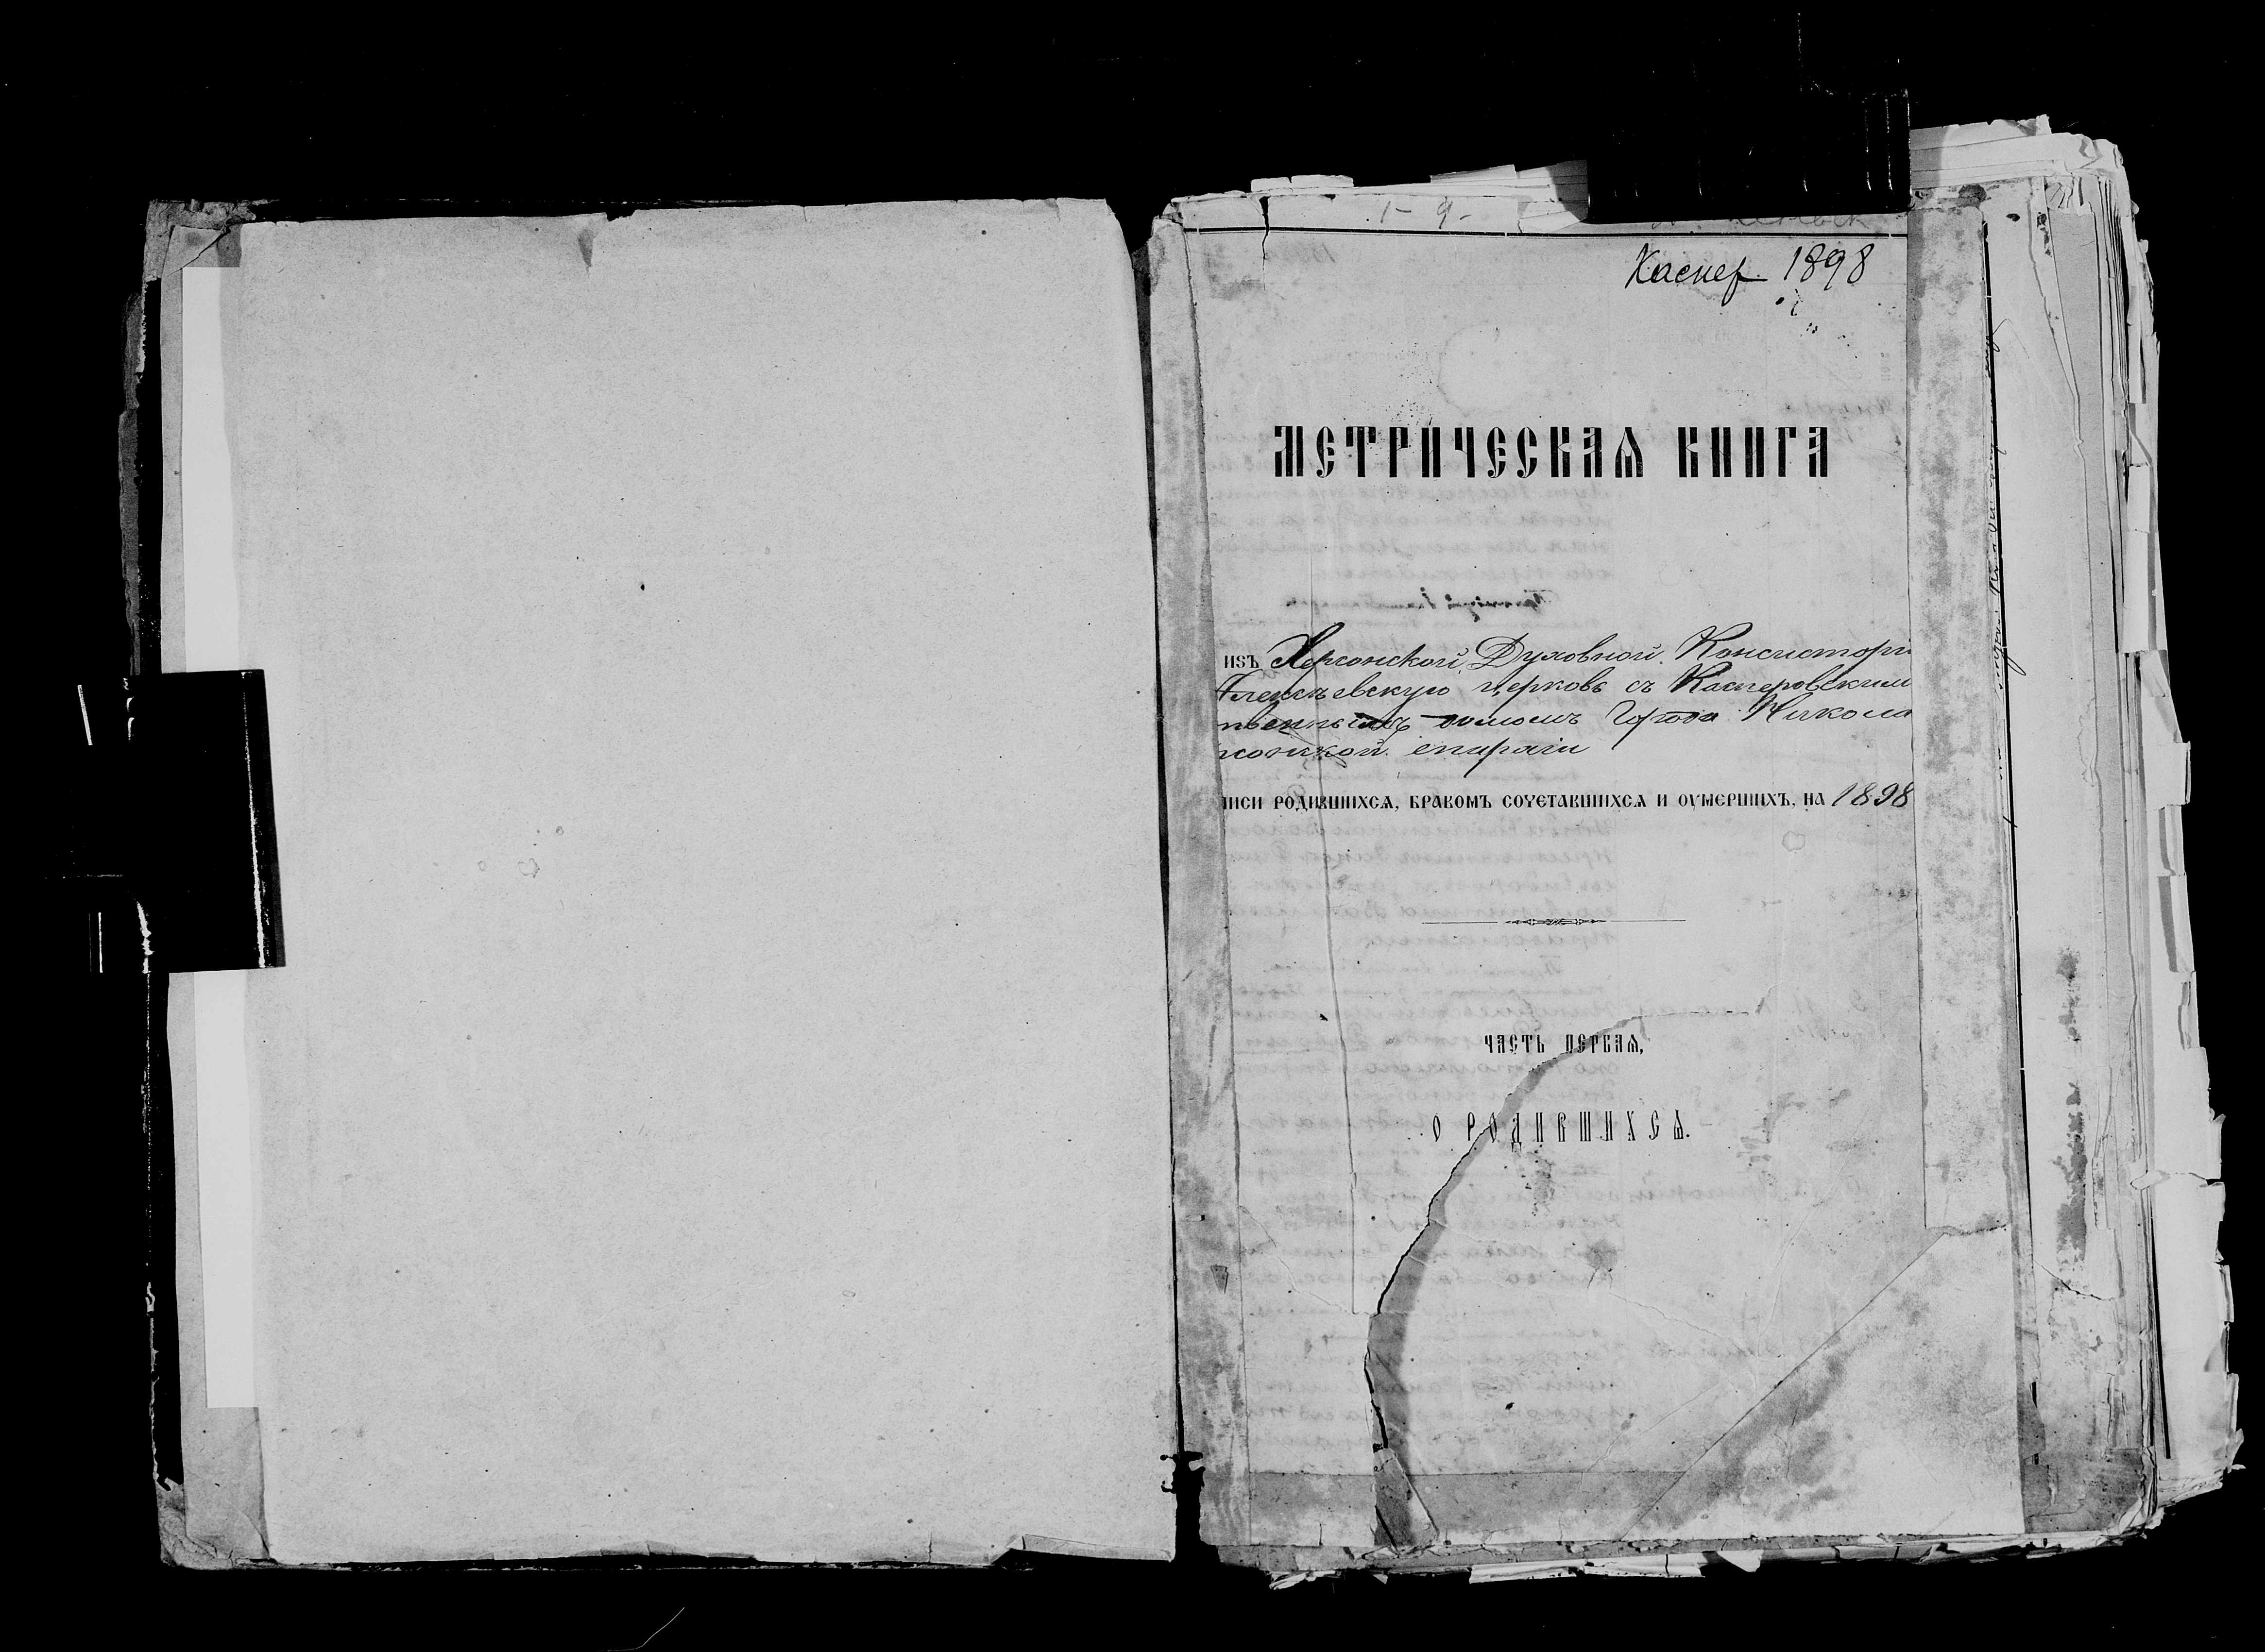 1 - 9 -
Каспер 1898
МЕТРИЧЕСКАѦ КНИГА
изъ Херсонской Духовной Консисторі
Алексѣевскую церковь съ Касперовским
домомъ Города Никола
сонской епархіи
писи родившихсѧ, бракомъ сочетавшихсѧ и оумершихъ, на 1898
ЧАСТЬ ПЕРВАѦ,
О РОДИВШИХСѦ.